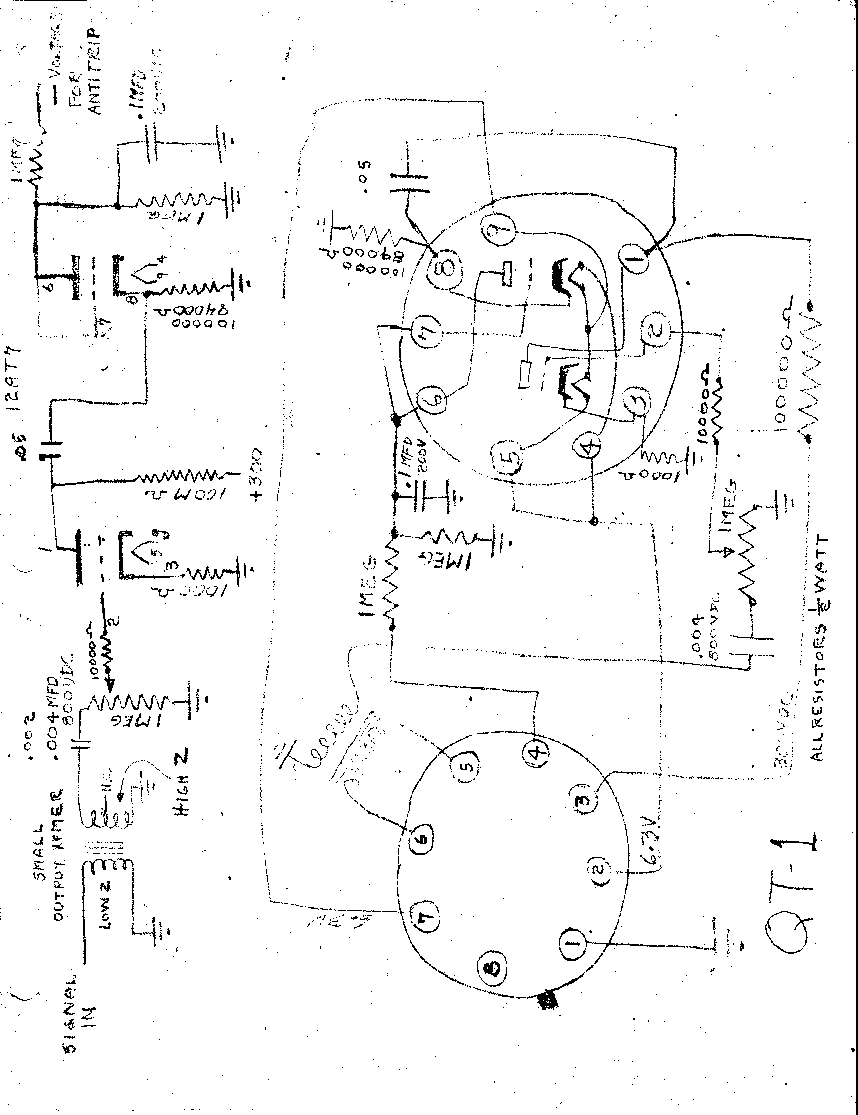 SIGNAL
IN
LOW Z
SMALL
OUTPUT XFMER
HIGH Z
.002
.004 MFD
800VDC
1MEG
10000Ω
2
1
3
5 9
1000
Ω
100MΩ
+300
.05
12AT7
7
8
6
9 4
100000
84000Ω
1MEG
1MEG
.1MFD
FOR
ANTITRIP
QT-1
1
2
3
4
5
6
7
8
6.3V
1MEG
1MEG
.1 MFD
800V
.004
800VDC
1MEG
10000Ω
1000Ω
100000Ω
1
2
3
4
5
6
7
8
9
100000
84000
Ω
.05
300VDC
ALL RESISTORS ½ WATT